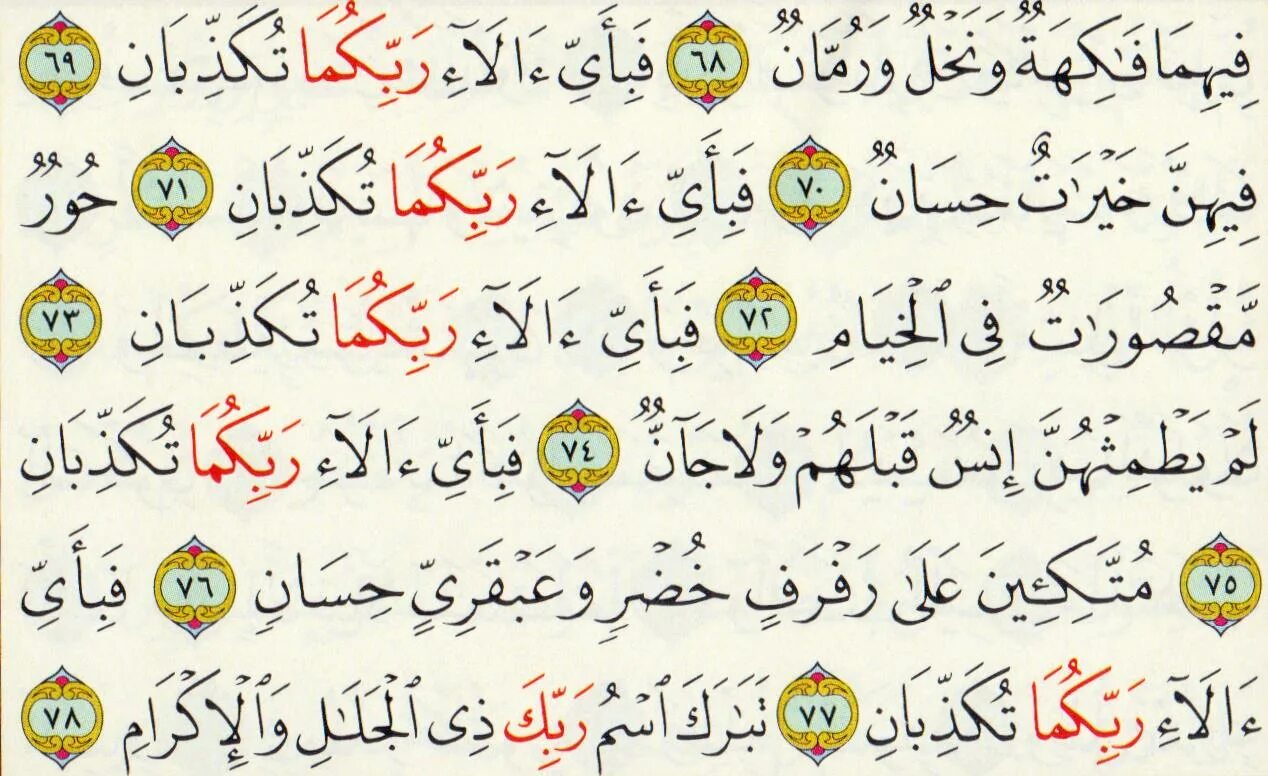 فِيهِمَا فَٰكِهَةٌ وَنَخْلٌ وَرُمَّانٌ ٦٨ فَبِأَيِّ ءَالَآءِ رَبِّكُمَا تُكَذِّبَانِ ٦٩
فِيهِنَّ خَيْرَٰتٌ حِسَانٌ ٧٠ فَبِأَيِّ ءَالَآءِ رَبِّكُمَا تُكَذِّبَانِ ٧١ حُورٌ
مَّقْصُورَٰتٌ فِى ٱلْخِيَامِ ٧٢ فَبِأَيِّ ءَالَآءِ رَبِّكُمَا تُكَذِّبَانِ ٧٣
لَمْ يَطْمِثْهُنَّ إِنسٌ قَبْلَهُمْ وَلَا جَآنٌّ ٧٤ فَبِأَيِّ ءَالَآءِ رَبِّكُمَا تُكَذِّبَانِ
٧٥ مُتَّكِـِٔينَ عَلَىٰ رَفْرَفٍ خُضْرٍ وَعَبْقَرِيٍّ حِسَانٍ ٧٦ فَبِأَيِّ
ءَالَآءِ رَبِّكُمَا تُكَذِّبَانِ ٧٧ تَبَٰرَكَ ٱسْمُ رَبِّكَ ذِى ٱلْجَلَٰلِ وَٱلْإِكْرَامِ ٧٨